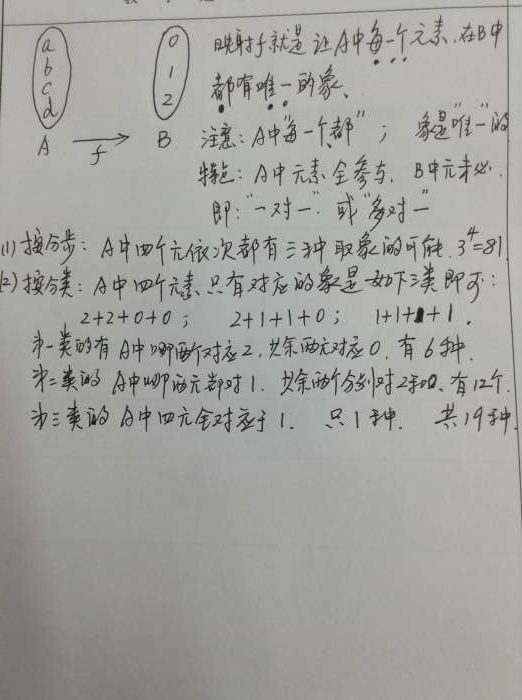 a
b
c
d
A
f
0
1
2
B
映射f就是 让A中每一个元素,在B中
都有唯一的象、
注意:A中"每一个都";象是"唯一"的
特点:A中元素全参与,B中元未必.
即:"一对一" 或"多对一"
(1)按分步:A中四个元依次都有三种取象的可能. 3⁴=81
(2)按分类:A中四个元素只有对应的象是如下三类即可:
2+2+0+0; 2+1+1+0; 1+1+1+1.
第一类的有A中哪两个对应2,其余两元对应0,有6种.
第二类的 A中哪两元都对1. 其余两个分别对2和0、有12个.
第三类的 A中四元全对应于1. 只1种. 共19种.